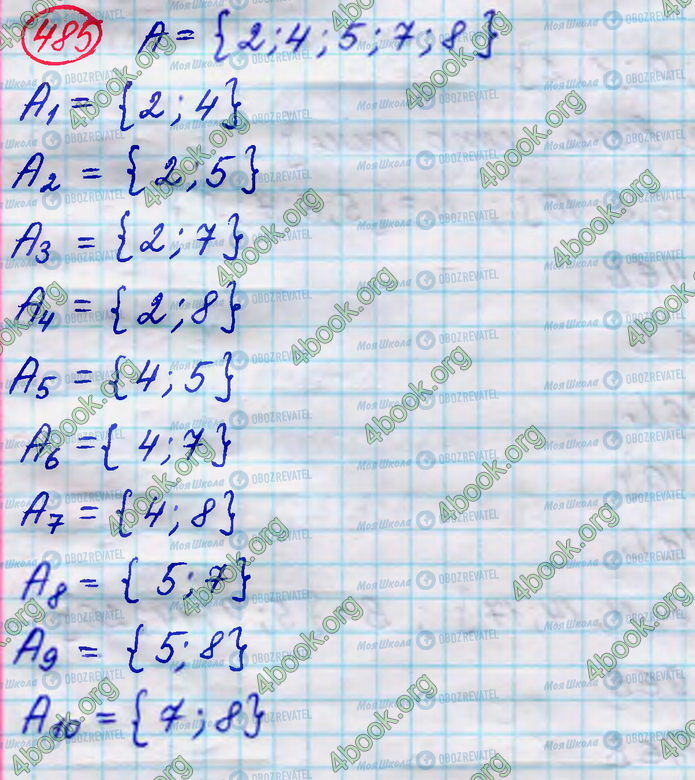 485 A = {2; 4; 5; 7; 8}
A1 = {2; 4}
A2 = {2, 5}
A3 = {2; 7}
A4 = {2; 8}
A5 = {4; 5}
A6 = {4; 7}
A7 = {4; 8}
A8 = {5; 7}
A9 = {5; 8}
A10 = {7; 8}
4book.org
МояШкола OBOZREVATEL